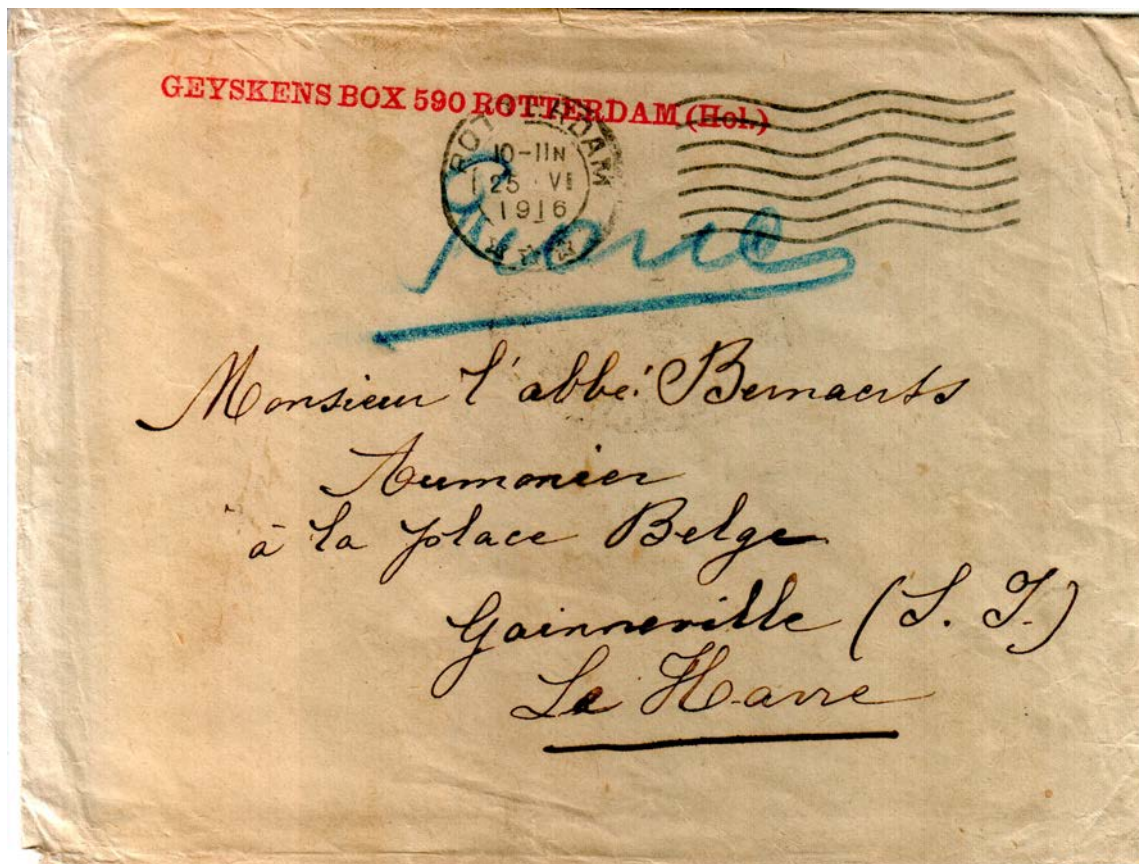 GEYSKENS BOX 590 ROTTERDAM (Hol.)
ROTTERDAM
10-11N
25 VI
1916
Monsieur l'abbé Bernaerts
Aumonier
à la place Belge
Gainneville (S. I.)
Le Havre